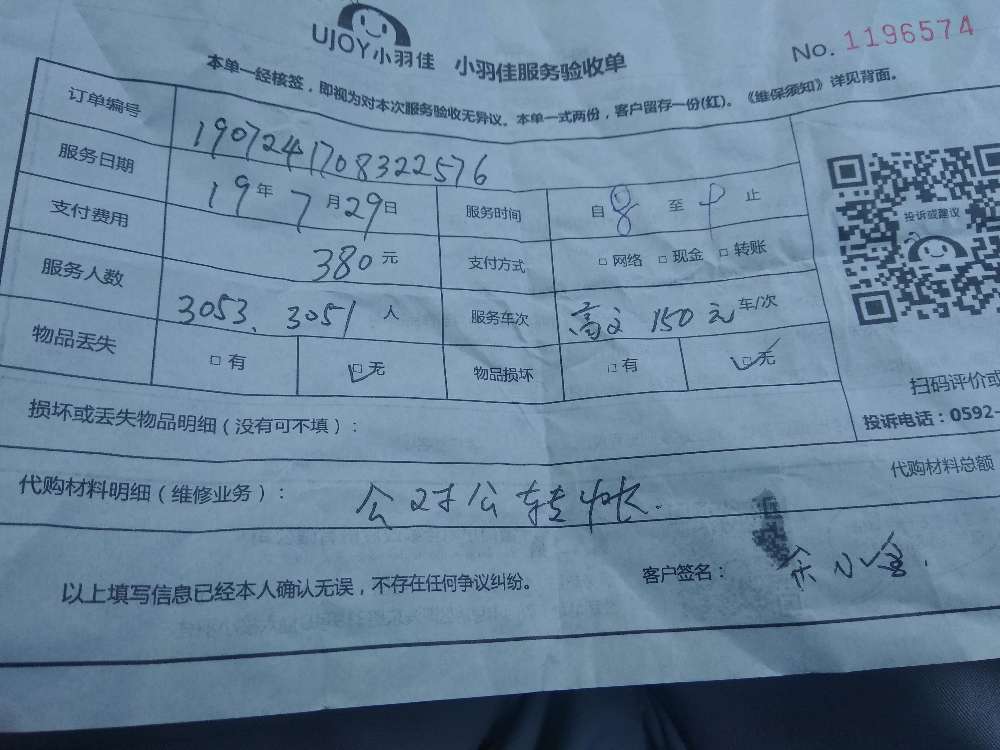 UJOY小羽佳 小羽佳服务验收单 No. 1196574
本单一经核签，即视为对本次服务验收无异议。本单一式两份，客户留存一份(红)。《维保须知》详见背面。
订单编号 1907241708322576
服务日期 19年7月29日 服务时间 自8至9止
支付费用 380元 支付方式 □网络 □现金 □转账
服务人数 3053、3051人 服务车次 150元车/次
物品丢失 □有 □无 物品损坏 □有 □无
投诉或建议
扫码评价或
投诉电话：0592-
损坏或丢失物品明细（没有可不填）：
代购材料明细（维修业务）： 公对公转帐. 代购材料总额
以上填写信息已经本人确认无误，不存在任何争议纠纷。 客户签名：